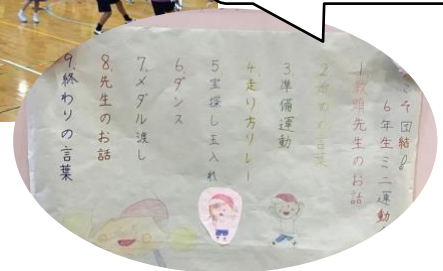 そ団結！
6年生ミニ運動
1.教頭先生のお話
2.始めの言葉
3.準備運動
4.走り方リレー
5.宝探し玉入れ
6.ダンス
7.メダル渡し
8.先生のお話
9.終わりの言葉